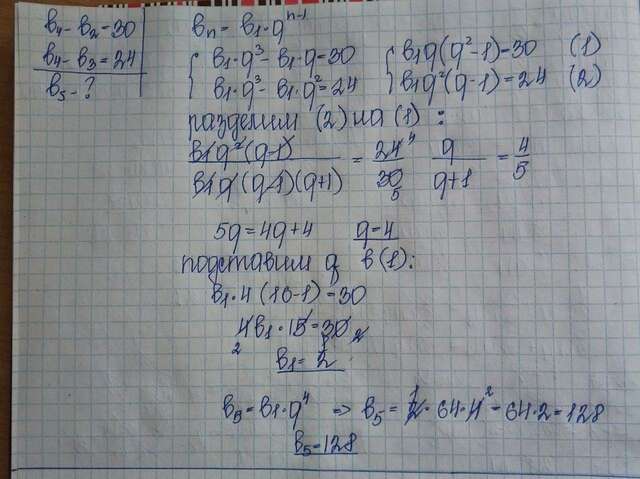 b₄-b₂=30
b₄-b₃=24
b₅-?
bₙ=b₁·qⁿ⁻¹
{ b₁·q³-b₁·q=30 { b₁q(q²-1)=30 (1)
b₁·q³-b₁·q²=24 b₁q²(q-1)=24 (2)
разделим (2) на (1) :
b₁q²(q-1) / b₁q(q-1)(q+1) = 24 4 / 30 5 q / q+1 = 4/5
5q=4q+4 q=4
подставим q в (1):
b₁·4(16-1)=30
4b₁·15=30 2
2 1
b₁=1/2
b₅=b₁·q⁴ => b₅=1/2·64·4²=64·2=128
b₅=128